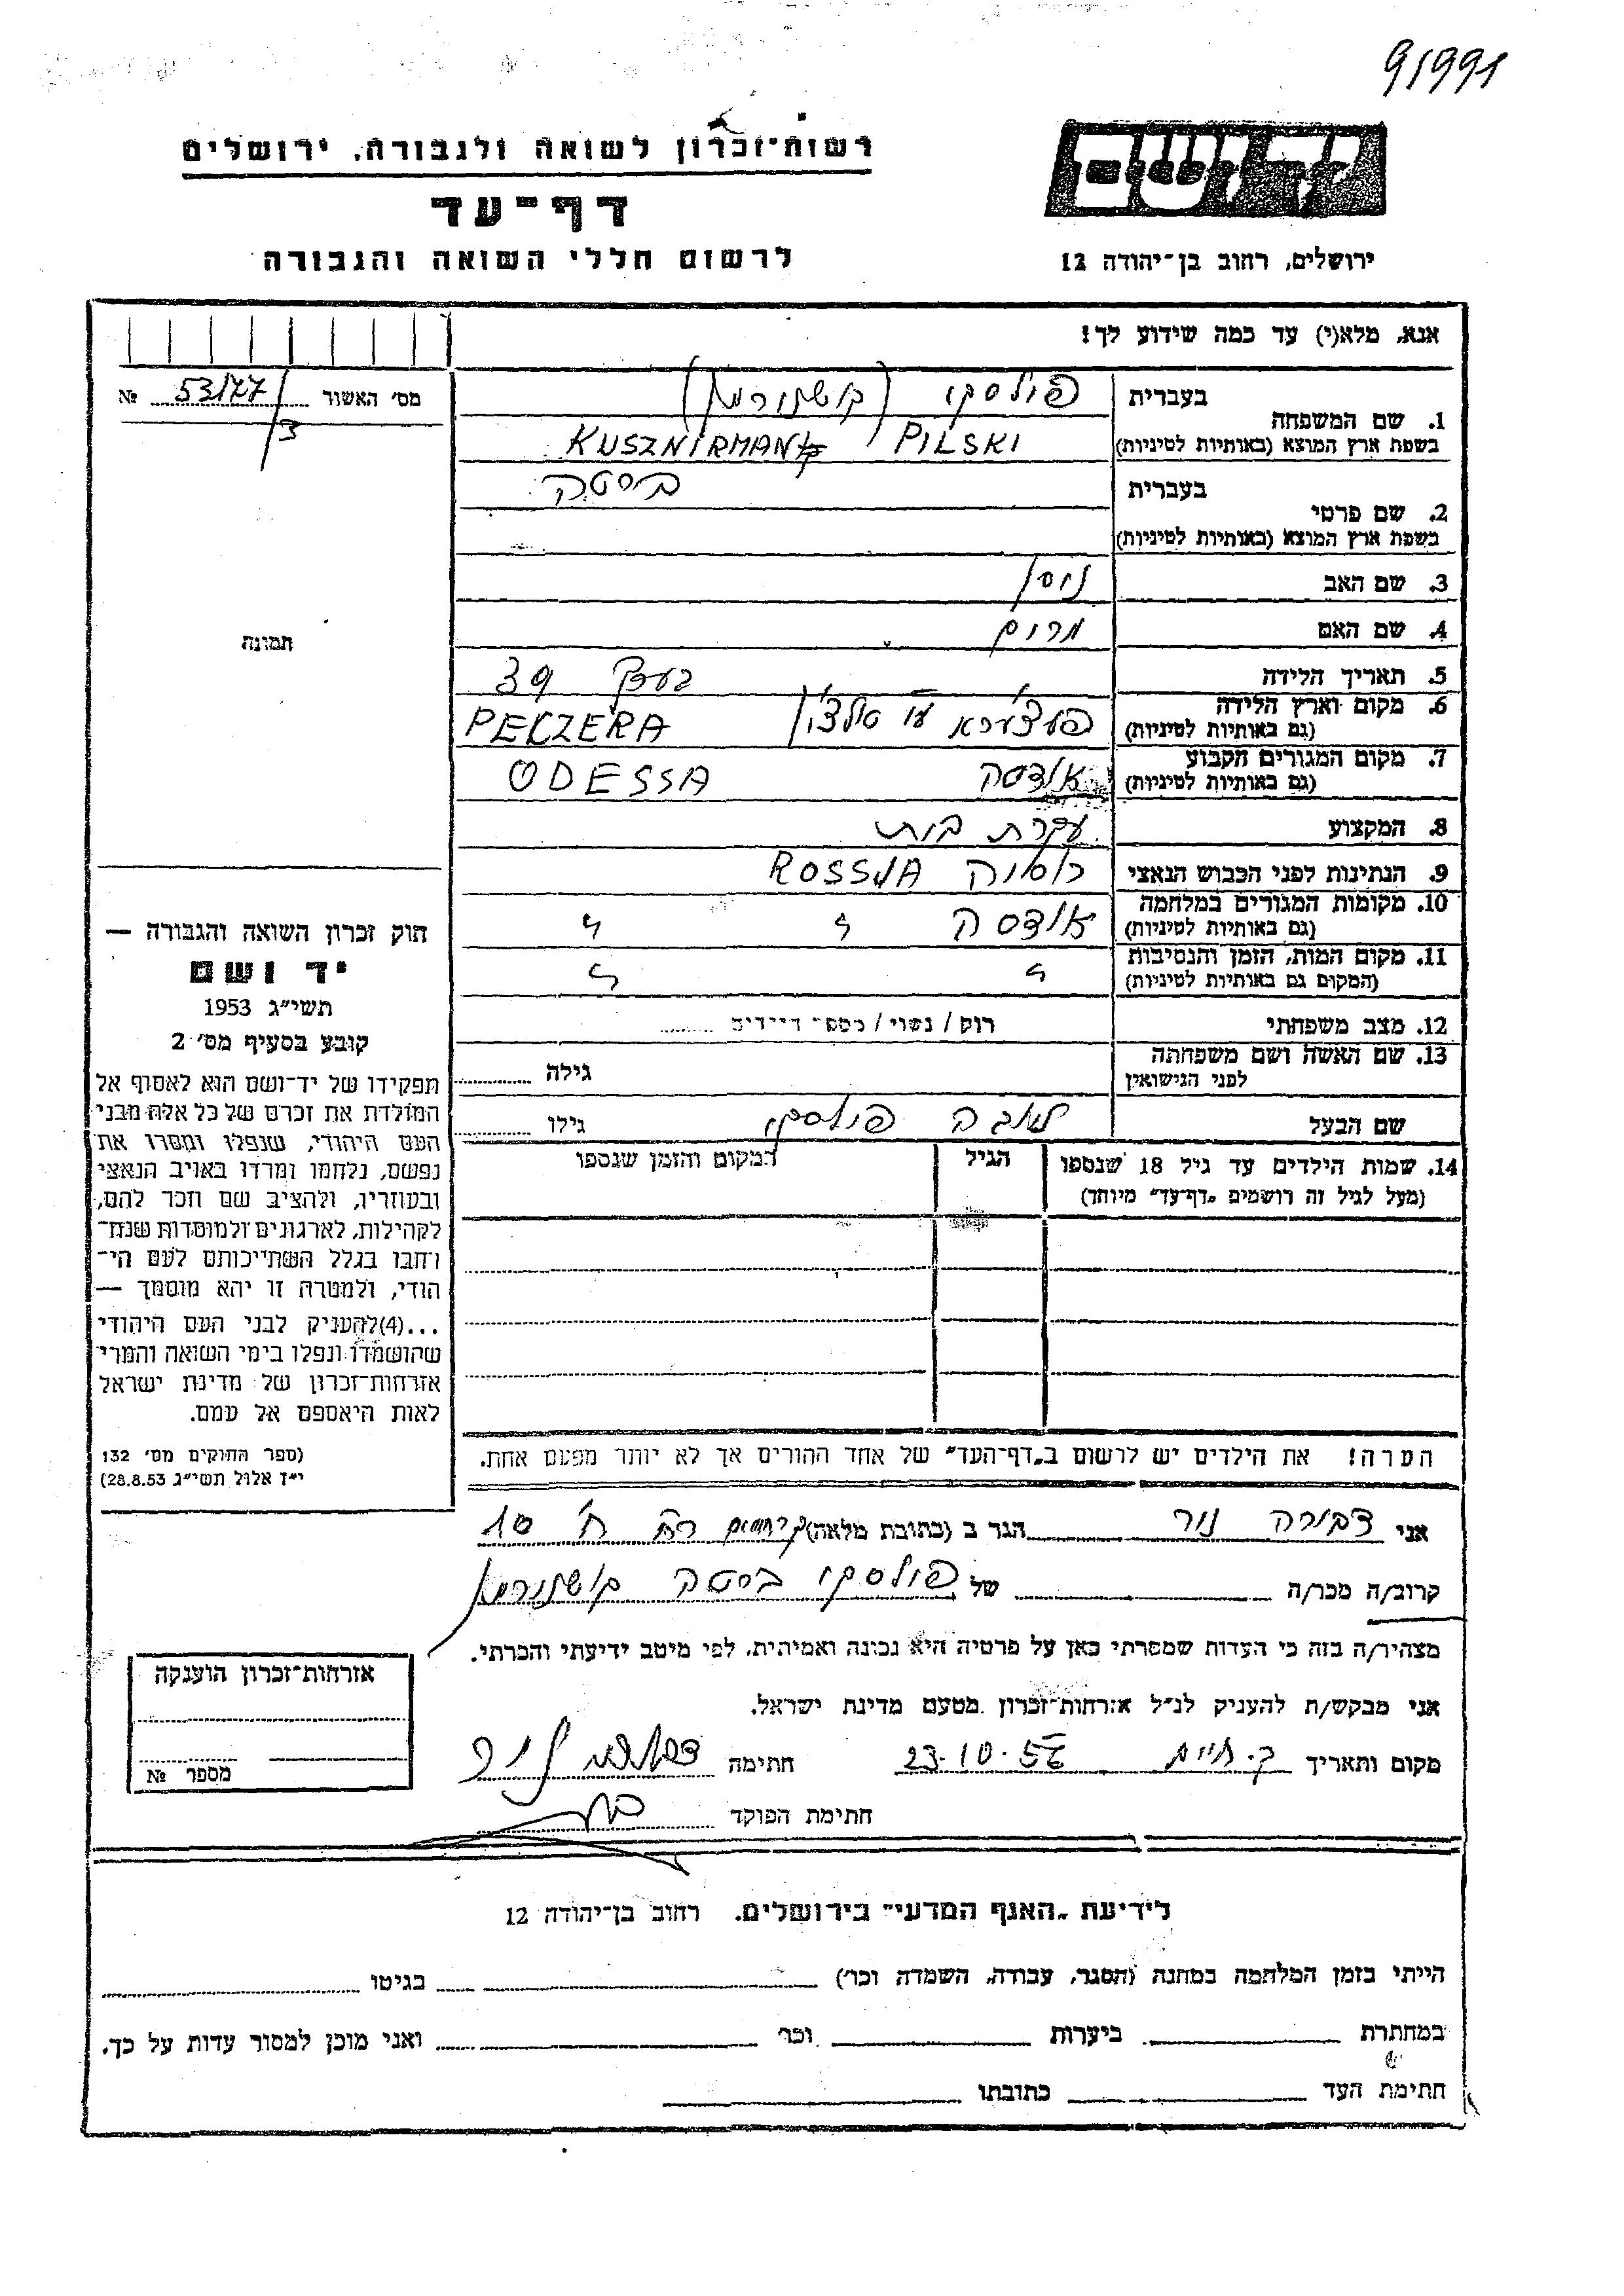 91991
יד ושם
רשות-זכרון לשואה ולגבורה, ירושלים
דף-עד
לרשום חללי השואה והגבורה
ירושלים, רחוב בן-יהודה 12
אנא, מלא(י) עד כמה שידוע לך!
מס׳ האשור № 53/77/3
1. שם המשפחה
בעברית פילסקי (קושנירמן)
בשפת ארץ המוצא (באותיות לטיניות) PILSKI KUSZNIRMAN
2. שם פרטי
בעברית ביסטה
בשפת ארץ המוצא (באותיות לטיניות)
3. שם האב ניסן
4. שם האם מרים
5. תאריך הלידה בערך 39
6. מקום וארץ הלידה
(גם באותיות לטיניות) פצ׳ערא ע״י טולצ׳ין PECZERA
7. מקום המגורים הקבוע
(גם באותיות לטיניות) אודסה ODESSA
8. המקצוע עקרת בית
9. הנתינות לפני הכבוש הנאצי רוסיה ROSSJA
10. מקומות המגורים במלחמה
(גם באותיות לטיניות) אודסה " "
11. מקום המות, הזמן והנסיבות
(המקום גם באותיות לטיניות) " "
12. מצב משפחתי רוק / נשוי / מספר הילדים
13. שם האשה ושם משפחתה
לפני הנישואין גילה
שם הבעל פילסקי גילו
14. שמות הילדים עד גיל 18 שנספו
(מעל לגיל זה רושמים „דף-עד" מיוחד)
הגיל
המקום והזמן שנספו
הערה! את הילדים יש לרשום ב„דף-העד" של אחד ההורים אך לא יותר מפעם אחת.
תמונה
חוק זכרון השואה והגבורה —
יד ושם
תשי״ג 1953
קובע בסעיף מס׳ 2
תפקידו של יד-ושם הוא לאסוף אל
המולדת את זכרם של כל אלה מבני
העם היהודי, שנפלו ומסרו את
נפשם, נלחמו ומרדו באויב הנאצי
ובעוזריו, ולהציב שם וזכר להם,
לקהילות, לארגונים ולמוסדות שנח-
רבו בגלל השתייכותם לעם הי-
הודי, ולמטרה זו יהא מוסמך —
...(4) להעניק לבני העם היהודי
שהושמדו ונפלו בימי השואה והמרי
אזרחות-זכרון של מדינת ישראל
לאות היאספם אל עמם.
(ספר החוקים מס׳ 132
י״ז אלול תשי״ג 28.8.53)
אני דבורה ניר הגר ב (כתובת מלאה) 10
קרוב/ה מכר/ה של פילסקי ביסטה קושנירמן
מצהיר/ה בזה כי העדות שמסרתי כאן על פרטיה היא נכונה ואמיתית, לפי מיטב ידיעתי והכרתי.
אני מבקש/ת להעניק לנ״ל אזרחות-זכרון מטעם מדינת ישראל.
מקום ותאריך ק. חיים 23-10-56 חתימה דבורה ניר
חתימת הפוקד
אזרחות-זכרון הוענקה
מספר №
לידיעת „האגף המדעי" בירושלים. רחוב בן-יהודה 12
הייתי בזמן המלחמה במחנה (הסגר, עבודה, השמדה וכר׳) בגיטו
במחתרת ביערות וכר׳ ואני מוכן למסור עדות על כך.
חתימת העד כתובתו